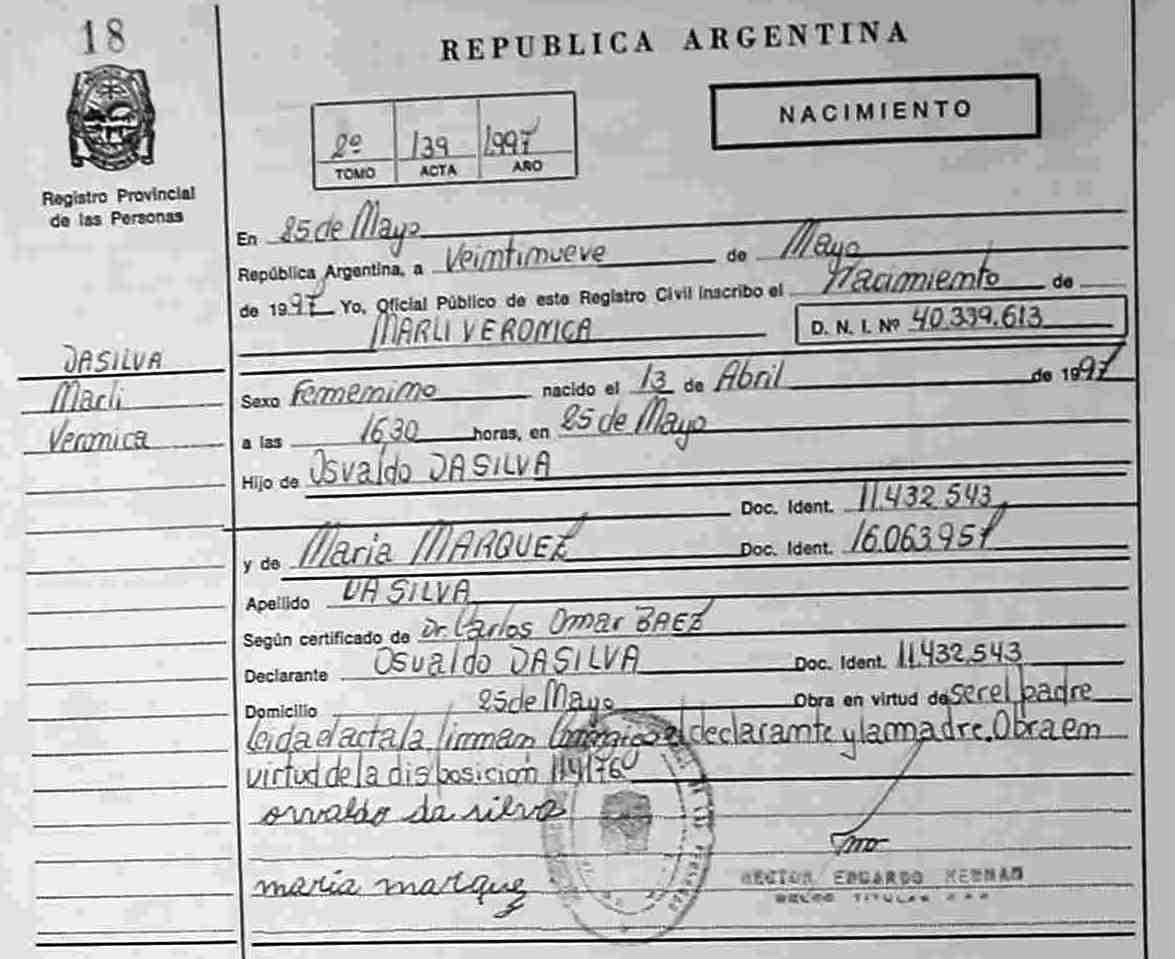 18
REPUBLICA ARGENTINA
NACIMIENTO
2º 139 1997
TOMO ACTA AÑO
Registro Provincial
de las Personas
En 25 de Mayo
República Argentina, a Veintinueve de Mayo
de 1997 Yo, Oficial Público de este Registro Civil inscribo el Nacimiento de
MARLI VERONICA D. N. I. Nº 40.339.613
DASILVA
Marli
Veronica
Sexo Femenino nacido el 13 de Abril de 1997
a las 1630 horas, en 25 de Mayo
Hijo de Osvaldo DASILVA
Doc. Ident. 11.432.543
y de Maria MARQUEZ Doc. Ident. 16.063.957
Apellido DA SILVA
Según certificado de Dr. Carlos Omar BAEZ
Declarante Osvaldo DASILVA Doc. Ident. 11.432.543
Domicilio 25 de Mayo Obra en virtud de ser el padre
leida el acta la firman Conmigo el declarante y la madre. Obra en
virtud de la disposicion 114/76
osvaldo da silva
maria marquez
HECTOR EDUARDO
TITULAR